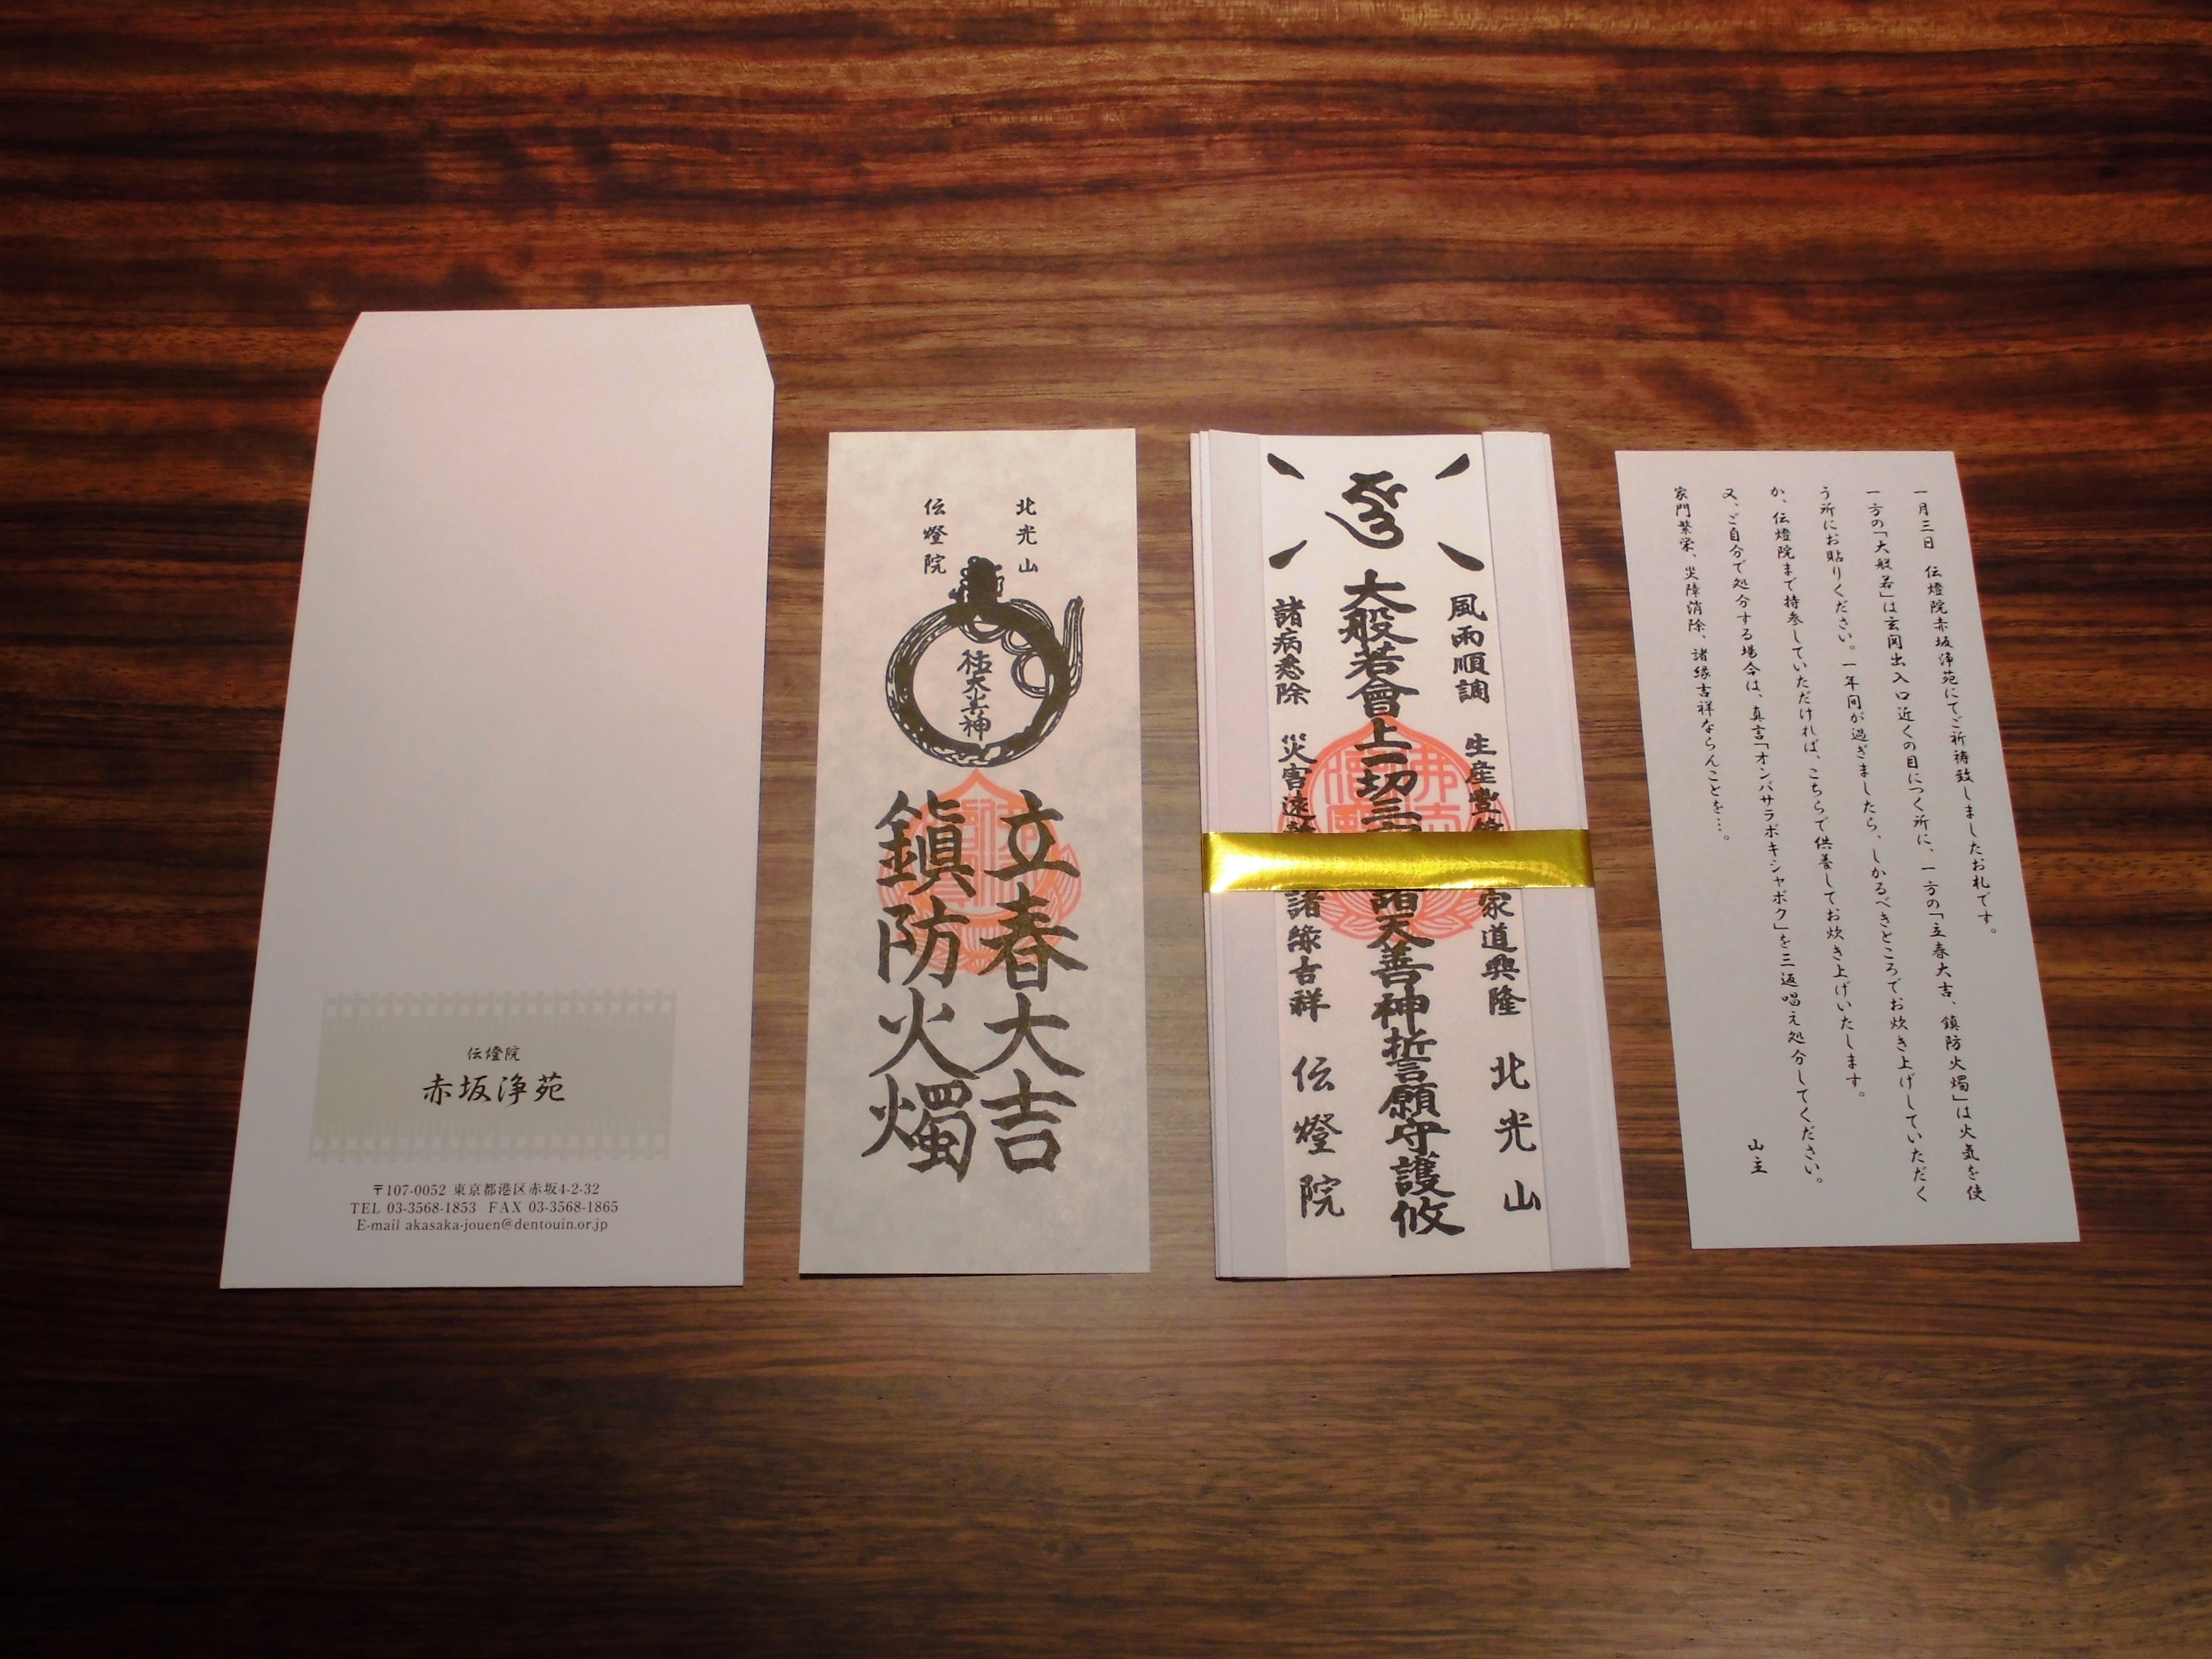 伝燈院
赤坂浄苑
〒107-0052 東京都港区赤坂4-2-32
TEL 03-3568-1853 FAX 03-3568-1865
E-mail akasaka-jouen@dentouin.or.jp
北光山
伝燈院
立春大吉
鎭防火燭
大般若會上一切三
諸天善神誓願守護攸
風雨順調 生産豊
家道興隆 北光山
諸病悉除 災害遠
諸緣吉祥 伝燈院
一月三日 伝燈院赤坂浄苑にてご祈祷致しましたお札です。
一方の「大般若」は玄関出入口近くの目につく所に、一方の「立春大吉、鎮防火燭」は火気を使
う所にお貼りください。一年間が過ぎましたら、しかるべきところでお炊き上げしていただく
か、伝燈院まで持参していただければ、こちらで供養してお炊き上げいたします。
又、ご自分で処分する場合は、真言「オンバサラボキシャボク」を三返唱え処分してください。
家門繁栄、災障消除、諸縁吉祥ならんことを…。
山主